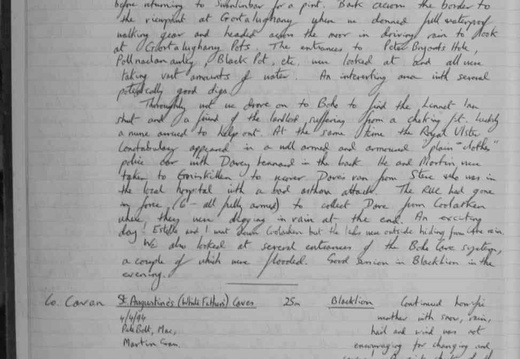 before returning to Swanlinbar for a pint. Back across the border to
the viewpoint at Gortalughany when we donned full waterproof
walking gear and headed across the moor in driving rain to look
at Gortalughany Pots. The entrances to Peter Bryants Hole,
Pollnaclanawley, Black Pot, etc. were looked at and all were
taking vast amounts of water. An interesting area with several
potentially good digs.
Thoroughly wet we drove on to Boho to find the Linnet Inn
shut and a friend of the landlord suffering from a choking fit. Luckily
a nurse arrived to help out. At the same time the Royal Ulster
Constabulary appeared in a well armed and armoured "plain clothes"
police car with Davey in the back. He and Martin were
taken to Enniskillen to recover Dave's van from Steve who was in
the local hospital with a bad asthma attack. The RUC had gone
in force (6 - all fully armed) to collect Dave from
where they were digging in rain at the end. An exciting
day. Estelle and I went down but the lads were outside hiding from the rain.
We also looked at several entrances of the Boho Cave system,
a couple of which were flooded. Good session in Blacklion in the
evening.
Co. Cavan St. Augustine's (White Fathers) Caves 25m Blacklion Continued horrific
4/4/94 weather with snow, rain,
Pete Bolt, Mac, hail and wind was not
Martin Gran. encouraging for changing and,